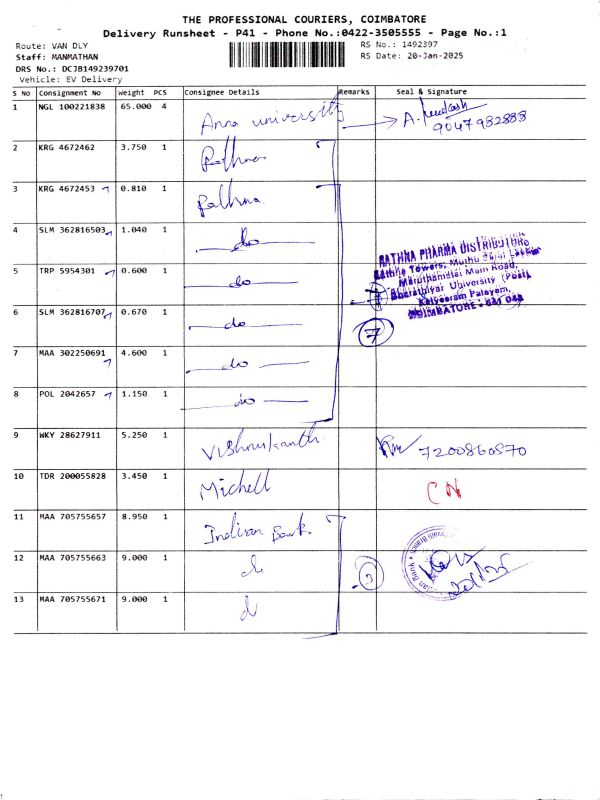 THE PROFESSIONAL COURIERS, COIMBATORE
Delivery Runsheet - P41 - Phone No.:0422-3505555 - Page No.:1
Route: VAN DLY
RS No.: 1492397
Staff: MANMATHAN
RS Date: 20-Jan-2025
DRS No.: DCJB149239701
Vehicle: EV Delivery
S No Consignment No Weight PCS Consignee Details Remarks Seal & Signature
1 NGL 100221838 65.000 4 Anna university A. 9047982888
2 KRG 4672462 3.750 1 Rathna
3 KRG 4672453 0.810 1 Rathna
4 SLM 362816503 1.040 1 do
RATHNA PHARMA DISTRIBUTORS
Rathna Towers,
Maruthamalai Main Road,
Bharathiyar University (Post)
Kalveeram Palayam,
COIMBATORE - 641 046
5 TRP 5954301 0.600 1 do
6 SLM 362816707 0.670 1 do 7
7 MAA 302250691 4.600 1 do
8 POL 2042657 1.150 1 do
9 WKY 28627911 5.250 1 Vishnukanth. 7200860570
10 TDR 200055828 3.450 1 Michell CN
11 MAA 705755657 8.950 1 Indian Bank.
12 MAA 705755663 9.000 1 do 3
13 MAA 705755671 9.000 1 do